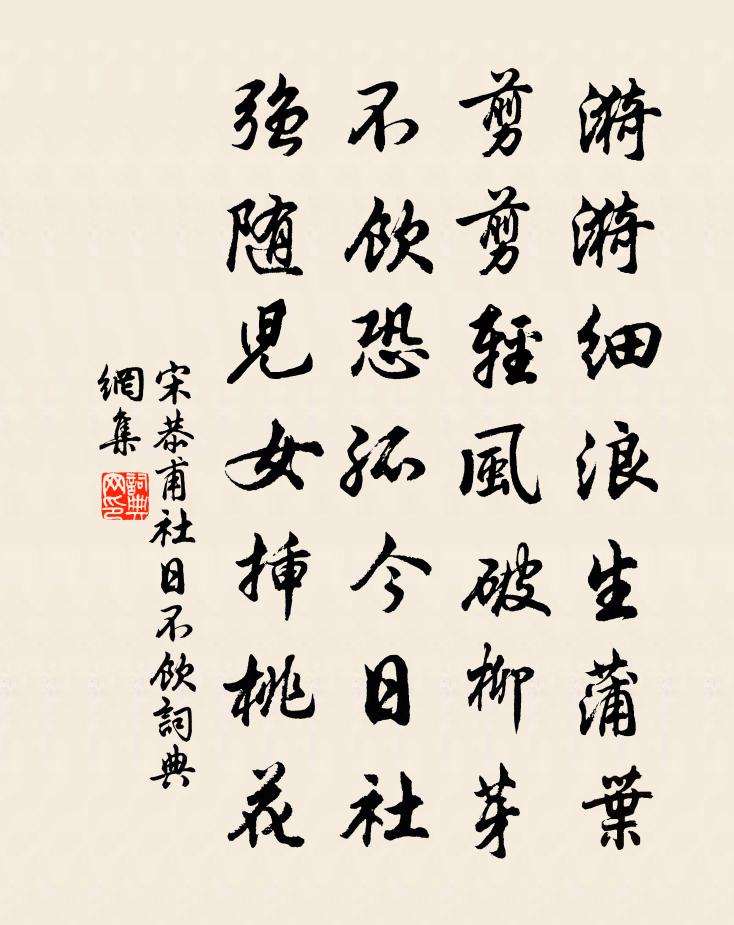 漪漪細浪生蒲葉
剪剪輕風破柳芽
不飲恐孤今日社
強隨児女挿桃花
宋恭甫社日不飲詞典
網集
詞典
网印